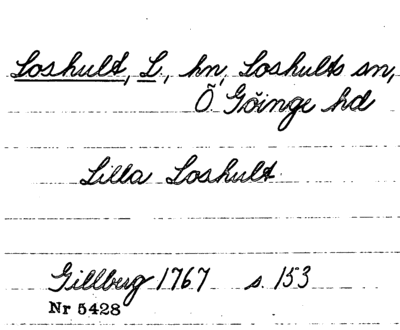 Loshult, L., hn, Loshults sn,
Ö. Göinge hd
Lilla Loshult
Gillberg 1767 s. 153
Nr 5428